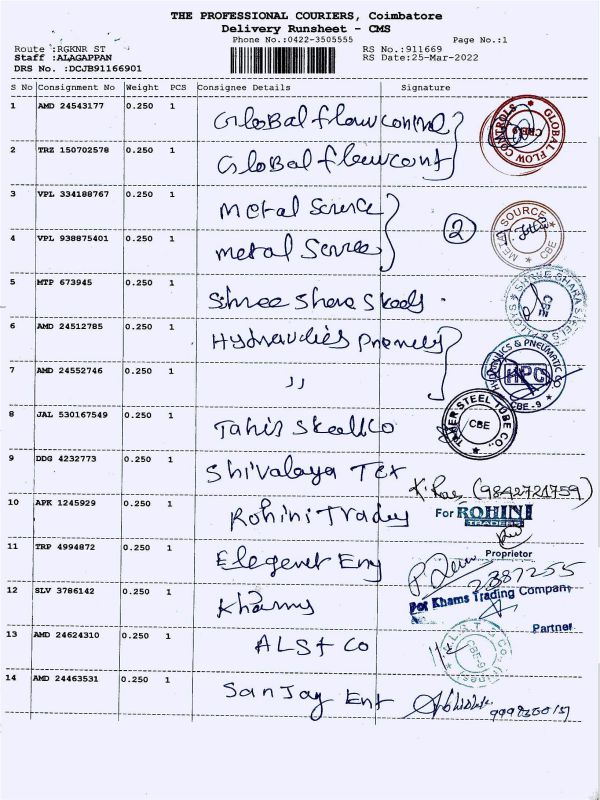 THE PROFESSIONAL COURIERS, Coimbatore
Delivery Runsheet - CMS
Phone No.:0422-3505555 Page No.:1
Route :RGKNR ST RS No.:911669
Staff :ALAGAPPAN RS Date:25-Mar-2022
DRS No. :DCJB91166901
S No Consignment No Weight PCS Consignee Details Signature
1 AMD 24543177 0.250 1 Global flow control
GLOBAL FLOW CONTROLS CBE-9
2 TRZ 150702578 0.250 1 Global flow cont
3 VPL 334188767 0.250 1 Metal Source
2
METAL SOURCE CBE
4 VPL 938875401 0.250 1 Metal
5 MTP 673945 0.250 1 Shree
CBE
6 AMD 24512785 0.250 1
7 AMD 24552746 0.250 1 ,,
& PNEUMATIC HPC CBE-9
8 JAL 530167549 0.250 1
STEEL TUBE CO. CBE
9 DDG 4232773 0.250 1 Shivalaya Tex
(9842721759)
10 APK 1245929 0.250 1 Rohini
For ROHINI
TRADERS
Proprietor
11 TRP 4994872 0.250 1
2387255
12 SLV 3786142 0.250 1 Khams
For Khams Trading Company
Partner
13 AMD 24624310 0.250 1 ALSt Co
CBE-9
14 AMD 24463531 0.250 1 Sanjay Ent